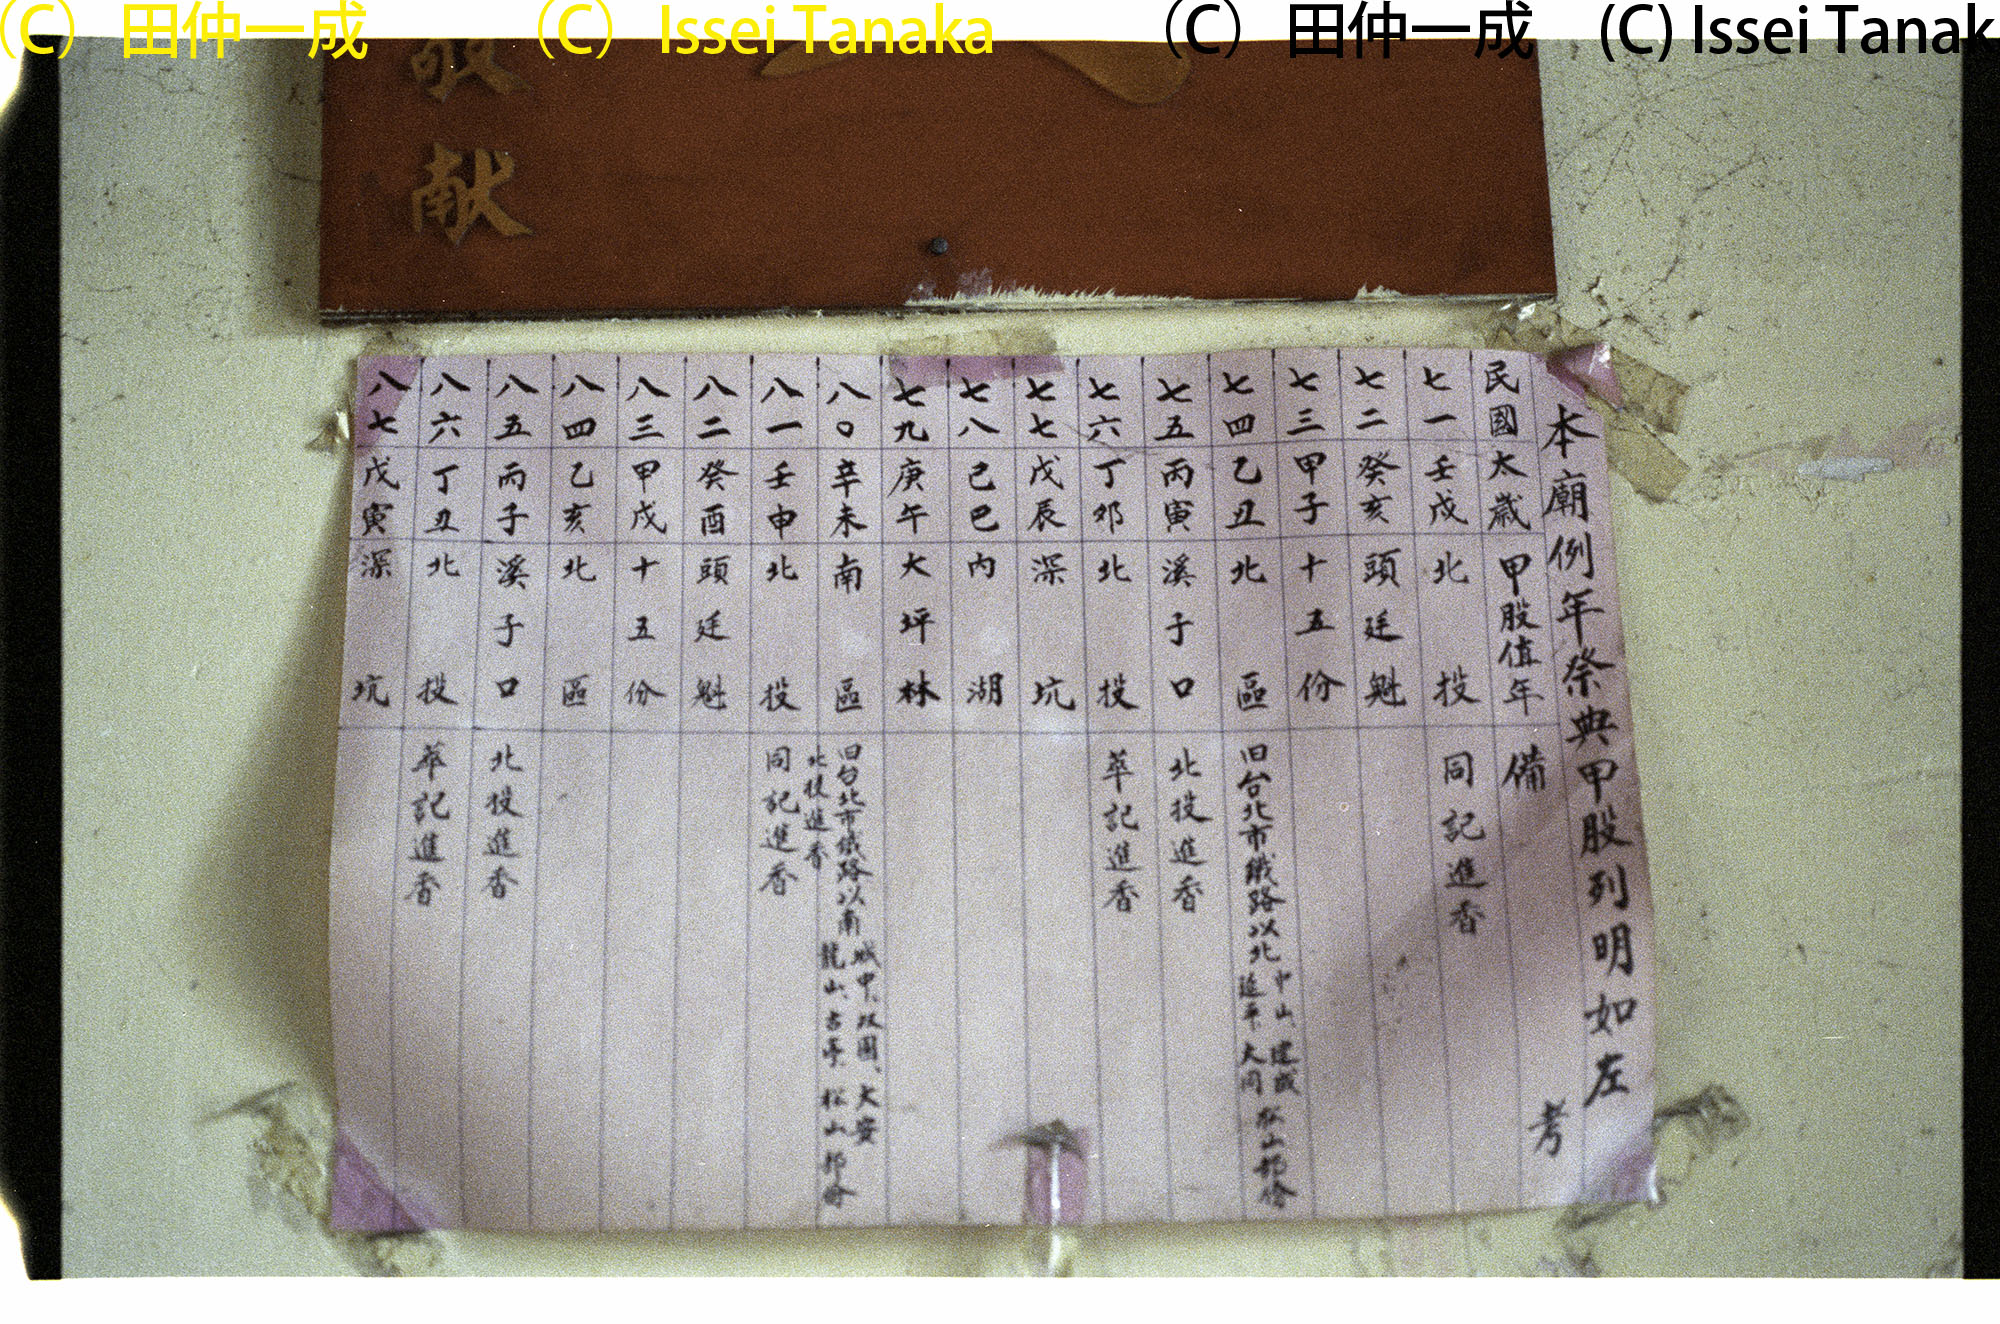 (C) 田仲一成
(C) Issei Tanaka
(C) 田仲一成
(C) Issei Tanak
敬献
本廟例年祭典甲股列明如左
民國 太歲 甲股值年 備考
七一 壬戌 北投 同記進香
七二 癸亥 頭廷魁
七三 甲子 十五份
七四 乙丑 北區 旧台北市鐵路以北 中山、建成 延平、大同 松山部份
七五 丙寅 溪子口 北投進香
七六 丁夘 北投 萃記進香
七七 戊辰 深坑
七八 己巳 內湖
七九 庚午 大坪林
八〇 辛未 南區 旧台北市鐵路以南 城中、双園、大安 龍山、古亭、松山部份 北投進香
八一 壬申 北投 同記進香
八二 癸酉 頭廷魁
八三 甲戌 十五份
八四 乙亥 北區
八五 丙子 溪子口 北投進香
八六 丁丑 北投 萃記進香
八七 戊寅 深坑